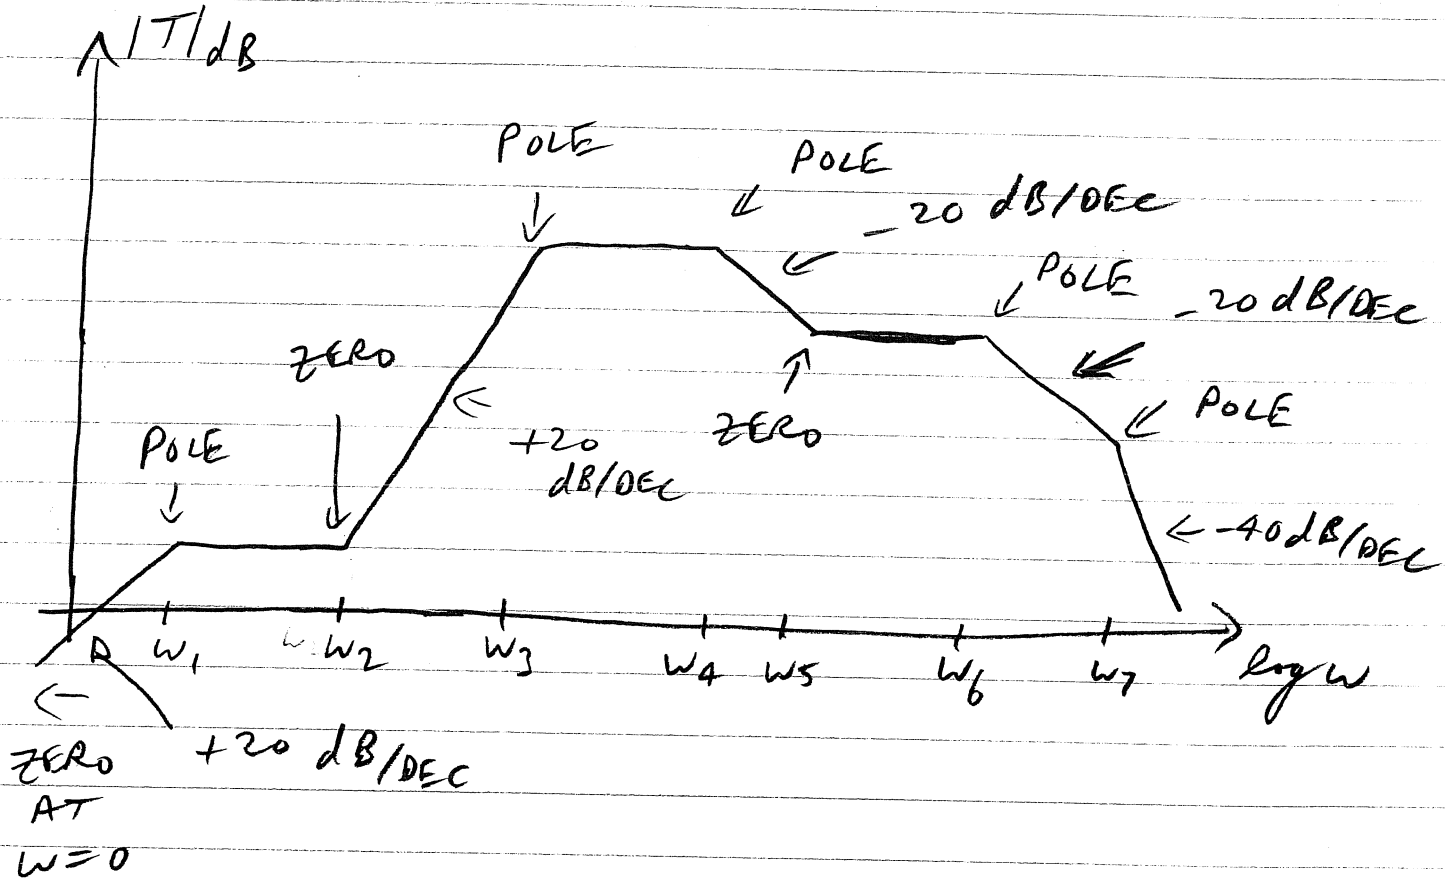 |T|dB
POLE
POLE
-20 dB/DEC
POLE
-20 dB/DEC
ZERO
POLE
ZERO
+20
dB/DEC
POLE
-40 dB/DEC
W1
W2
W3
W4
W5
W6
W7
log W
ZERO
AT
W=0
+20 dB/DEC